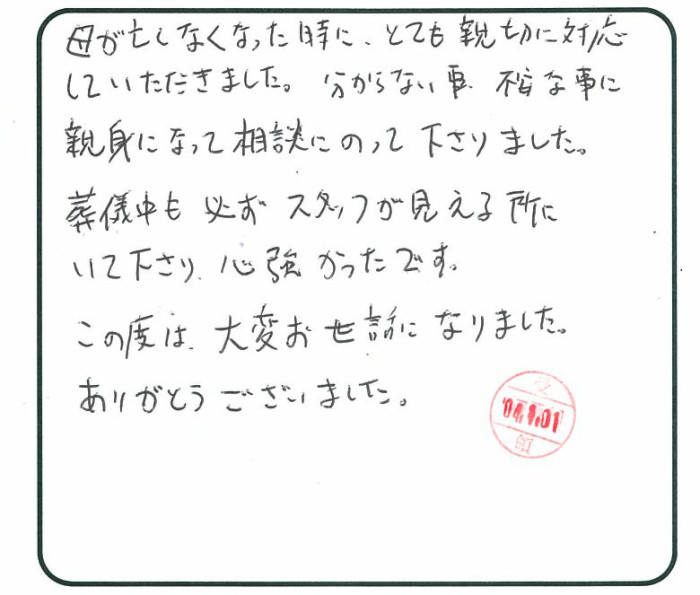 母が亡しなくなった時に、とても親切に対応
していただきました。分からない事 不安な事に
親身になって相談にのって下さりました。
葬儀中も必ずスタッフが見える所に
いて下さり、心強かったです。
この度は、大変お世話になりました。
ありがとうございました。
受
領